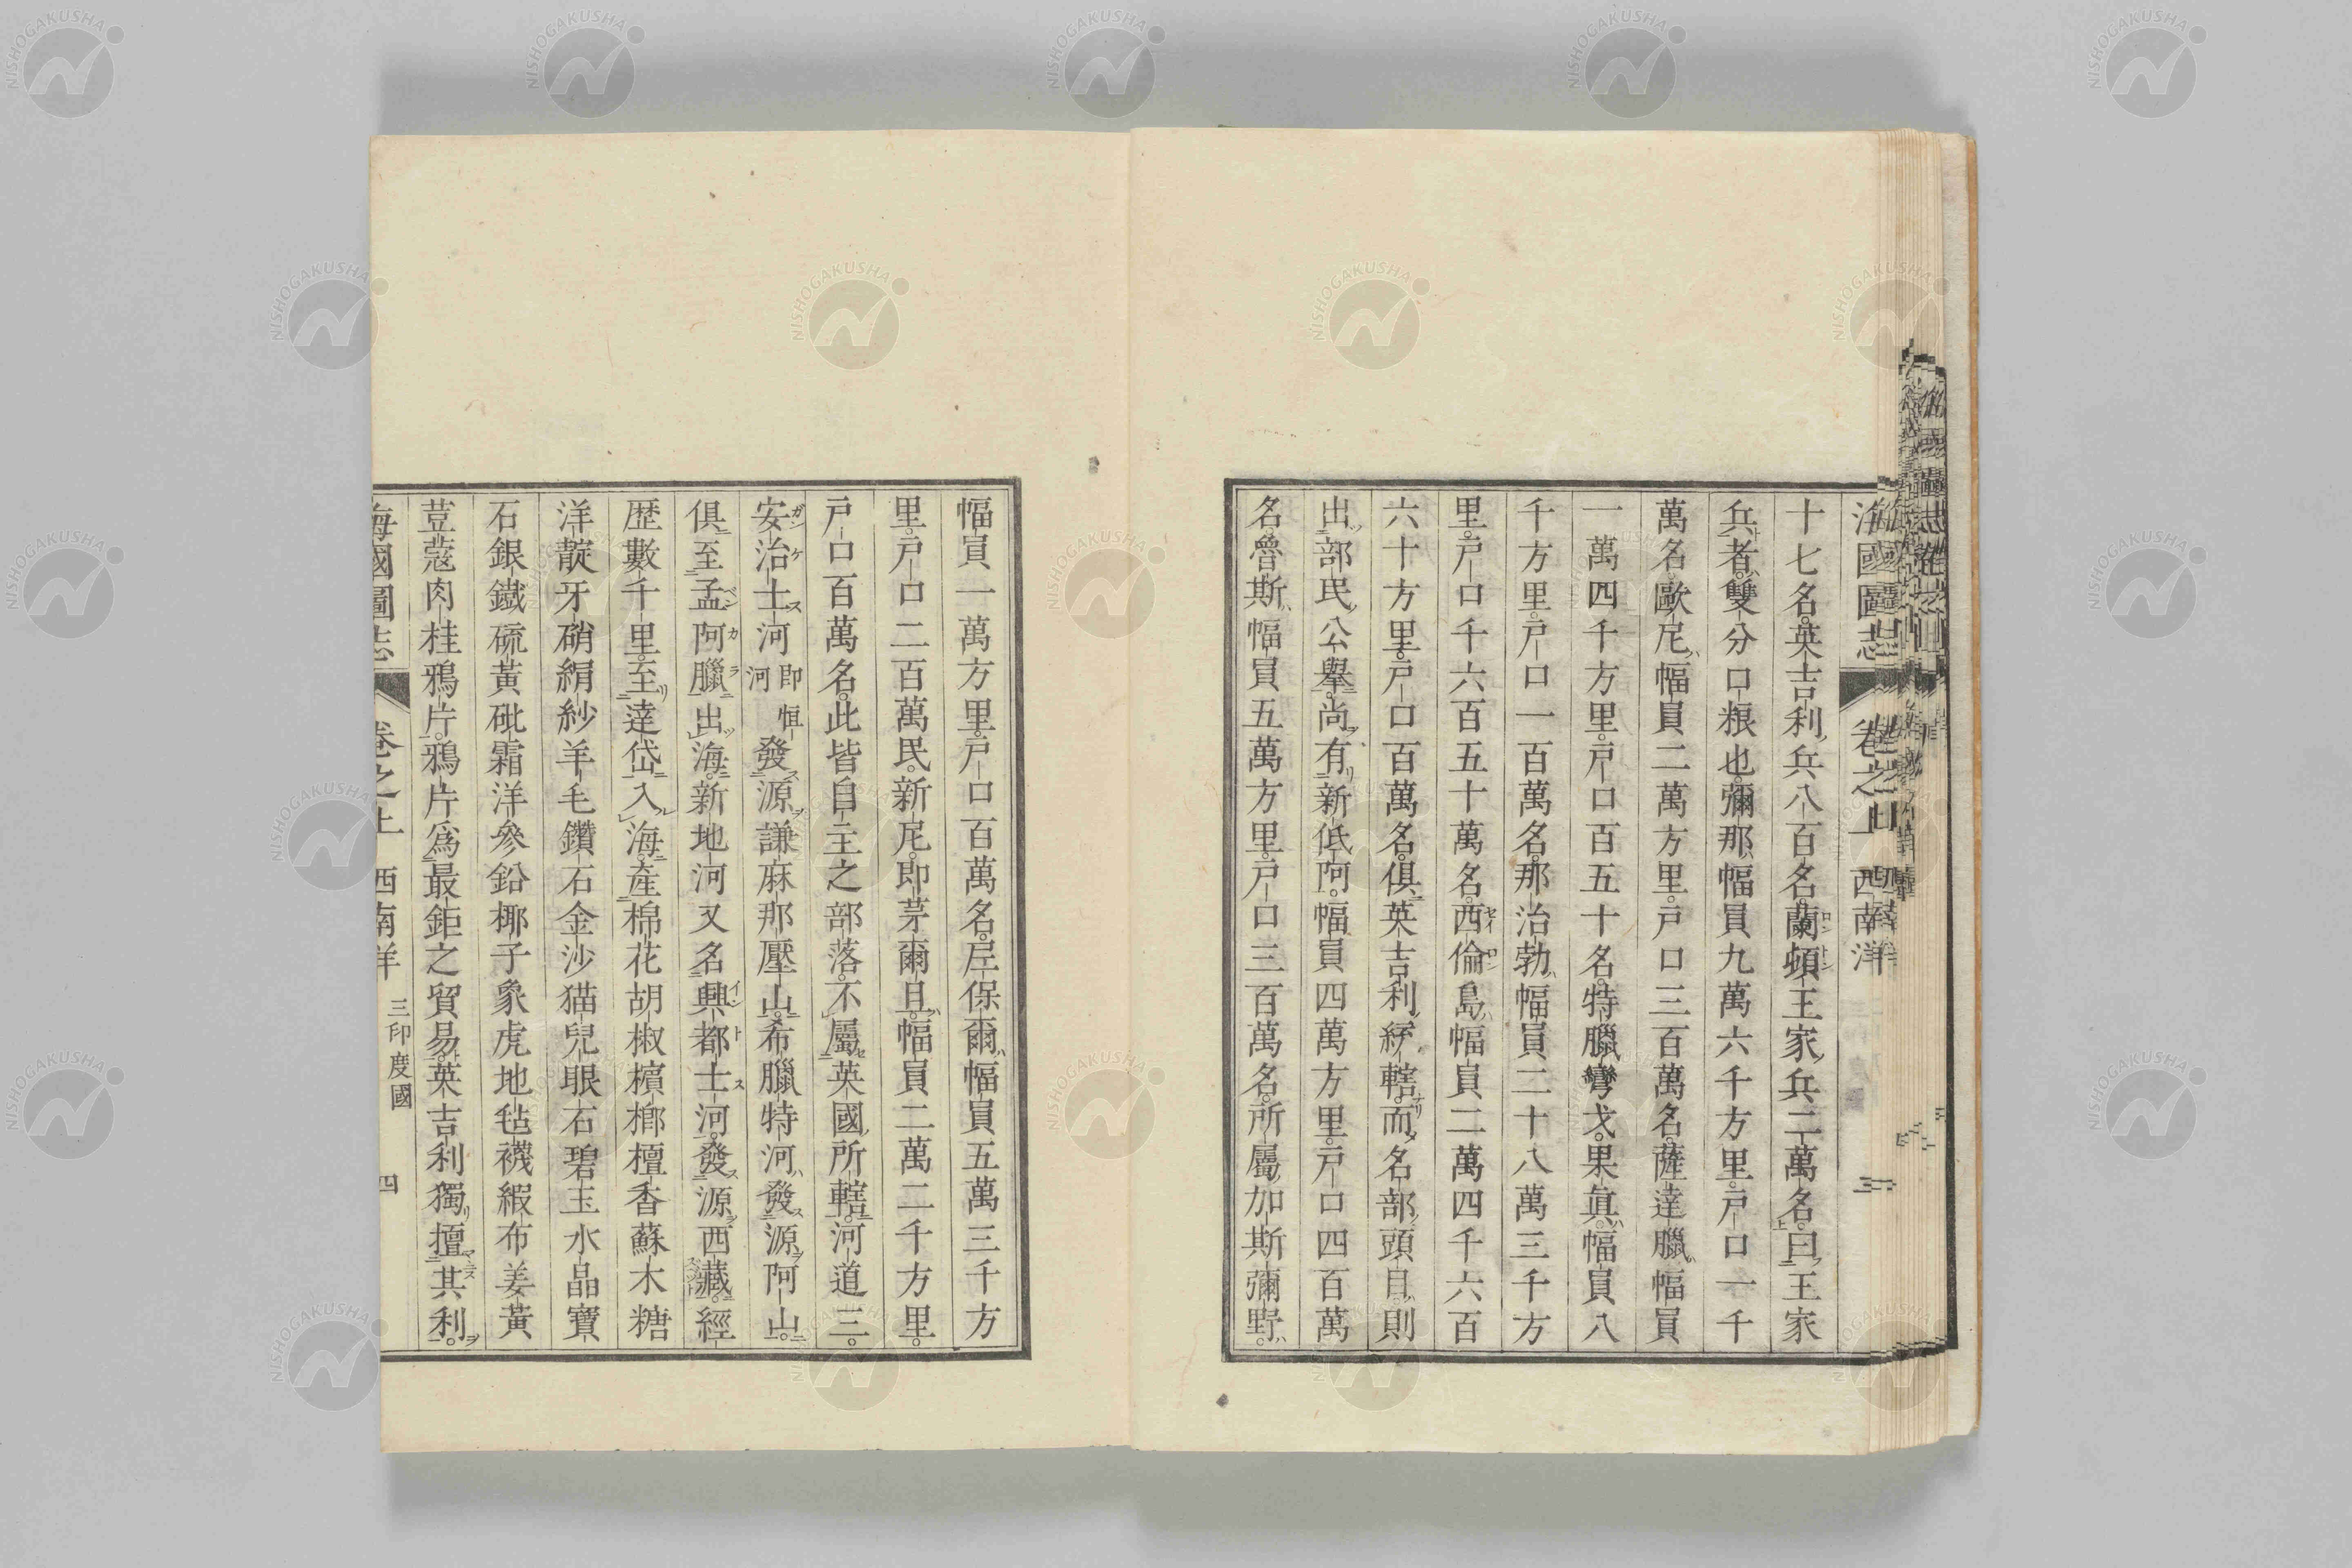 海國圖志 卷之上 西南洋
十七名。英吉利兵八百名。蘭頓王家兵二萬名。曰王家
兵者。雙分口粮也。彌那幅員九萬六千方里。戸口一千
萬名。歐尼幅員二萬方里。戸口三百萬名。薩達臘幅員
一萬四千方里。戸口百五十名。特臘彎戈。果眞。幅員八
千方里。戸口一百萬名。那治勃幅員二十八萬三千方
里。戸口千六百五十萬名。西倫島幅員二萬四千六百
六十方里。戸口百萬名。俱英吉利統轄。而名部頭目則
出部民公舉。尚有新低阿。幅員四萬方里。戸口四百萬
名。魯斯幅員五萬方里。戸口三百萬名。所屬加斯彌野。
幅員一萬方里。戸口百萬名。尼保爾幅員五萬三千方
里。戸口二百萬民。新尼即茅爾旦。幅員二萬二千方里。
戸口百萬名。此皆自主之部落。不屬英國所轄。河道三。
安治士河即恒河發源謙麻那壓山。布臘特河發源阿山。
俱至孟阿臘出海。新地河又名興都士河。發源西藏。經
歴數千里。至達岱入海。產棉花胡椒檳榔檀香蘇木糖
洋靛牙硝絹紗羊毛鑽石金沙猫兒眼石碧玉水晶寶
石銀鐵硫黃砒霜洋參鉛椰子象虎地毡襪緞布姜黃
荳蔻肉桂鴉片。鴉片爲最鉅之貿易。英吉利獨擅其利。
海國圖志 卷之上 西南洋 三印度國 四
NISHOGAKUSHA